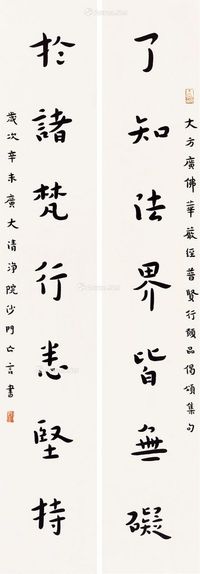 大方廣佛華嚴經普賢行願品偈頌集句
了知法界皆無礙
於諸梵行悉堅持
歲次辛未廣大清淨院沙門亡言書